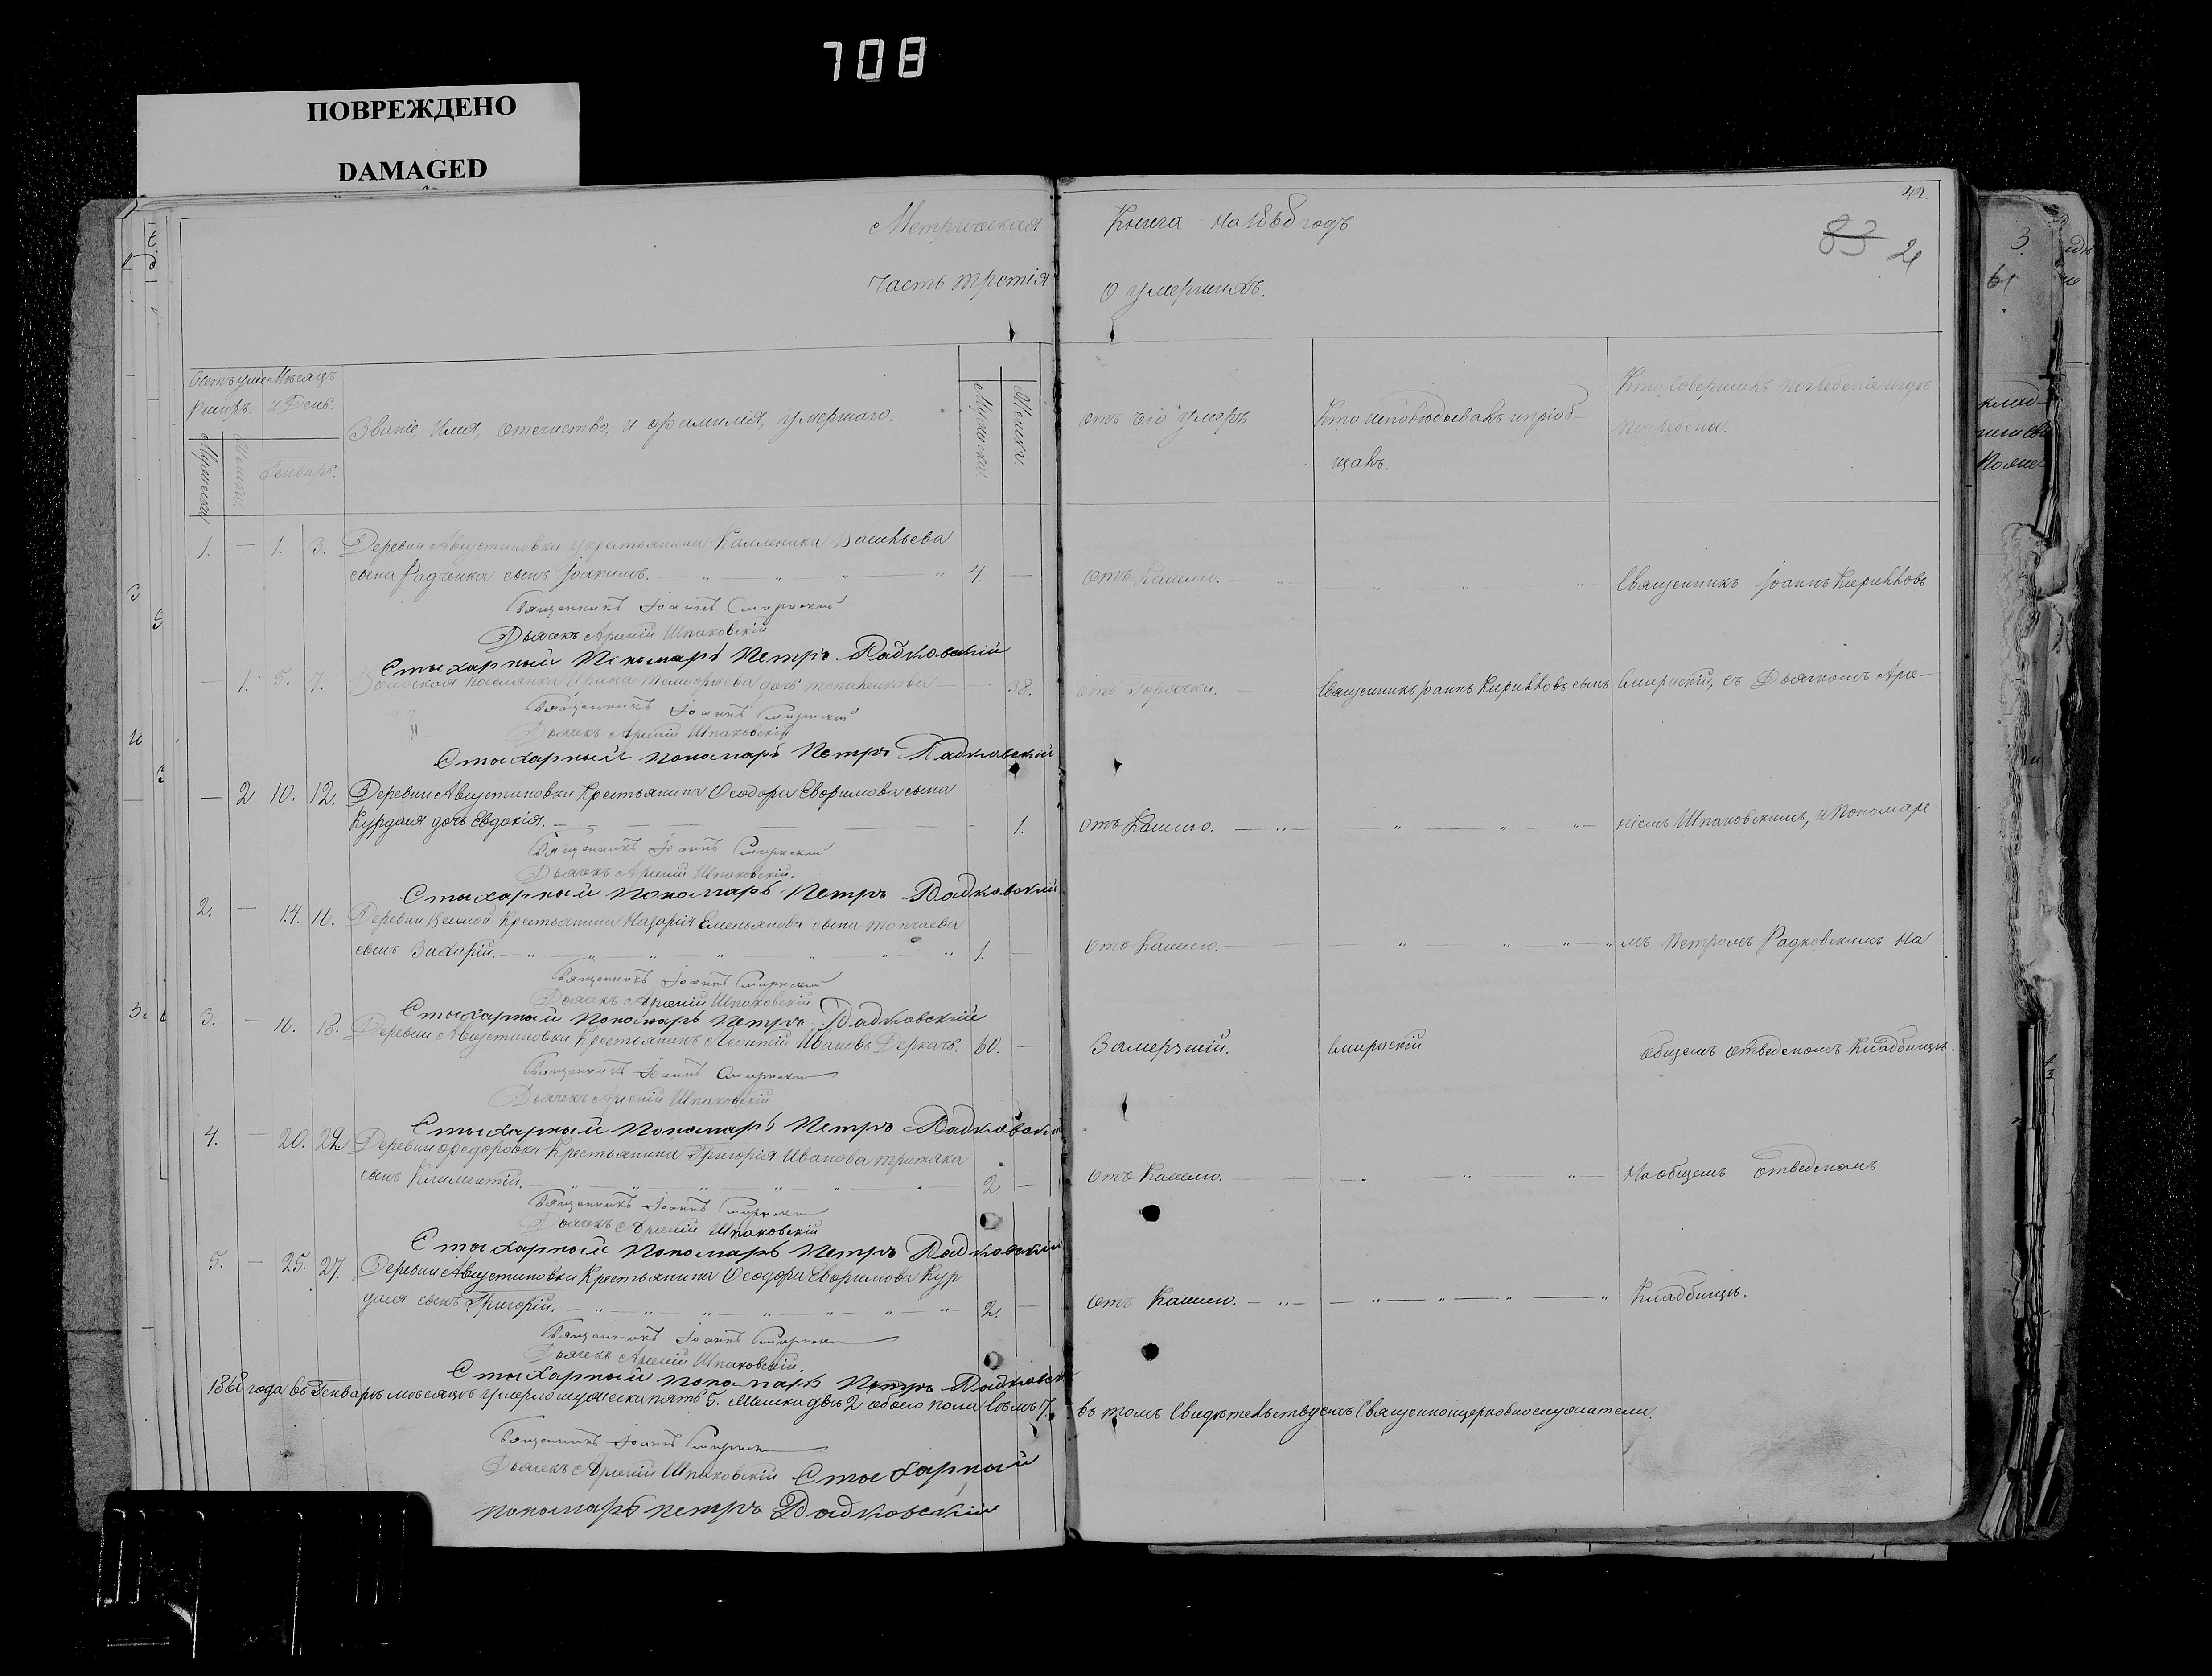 708
ПОВРЕЖДЕНО
DAMAGED
Метрическая
Часть третія
Счетъ умершихъ.
Мѣсяцъ и День.
Званіе, Имя, отечество, и фамилія, умершаго.
Мужеска
Женска.
Мужеска
Женска.
Генварь.
1. — 1. 3. Деревни Августиновки крестьянина Каленика Васильева
сына Радченка сынъ Іоакимъ. 4. —
Священникъ Іоаннъ Смирнскій
Дьячекъ Арсеній Шпаковскій
Стыхарный Пономарь Петръ Радковскій
— 1. 5. 7. поселянка Ирина дочь 38.
Священникъ Іоаннъ Смирнскій
Дьячекъ Арсеній Шпаковскій
Стыхарный пономарь Петръ Радковскій
— 2 10. 12. Деревни Августиновки Крестьянина Ѳеодора Евфимова сына
Курдаля дочь Евдокія. — 1.
Священникъ Іоаннъ Смирнскій
Дьячекъ Арсеній Шпаковскій.
Стыхарный пономарь Петръ Радковскій
2. — 14. 16. Деревни Крестьянина Назарія Емельянова сына
сынъ Захарій. — 1. —
Священникъ Іоаннъ Смирнскій
Дьячекъ Арсеній Шпаковскій
Стыхарный пономарь Петръ Радковскій
3. — 16. 18. Деревни Августиновки Крестьянинъ Леонтій Ивановъ Деркачъ. 60. —
Священникъ Іоаннъ Смирнскій
Дьячекъ Арсеній Шпаковскій
Стыхарный пономарь Петръ Радковскій
4. — 20. 22. Деревни Федоровки Крестьянина Григорія Иванова Третяка
сынъ Климентій. — 2. —
Священникъ Іоаннъ Смирнскій
Дьячекъ Арсеній Шпаковскій
Стыхарный пономарь Петръ Радковскій
5. — 25. 27. Деревни Августиновки Крестьянина Ѳеодора Евфимова Кур
даля сынъ Григорій. — 2. —
Священникъ Іоаннъ Смирнскій
Дьячекъ Арсеній Шпаковскій.
Стыхарный пономарь Петръ Радковскій
1868 года въ Генварѣ мѣсяцѣ умерло мужеска пять 5. Женска двѣ 2 обоего пола 7.
Священникъ Іоаннъ Смирнскій
Дьячекъ Арсеній Шпаковскій Стыхарный
пономарь петръ Радковскій
Книга на 1868 годъ
О умершихъ.
42.
83 2
отъ чего умеръ
Кто исповѣдывалъ и пріоб
щалъ.
Кто Совершалъ погребеніе и гдѣ
погребены.
отъ Кашлю.
Священникъ Іоаннъ Кирилловъ
отъ Горячки. Священникъ Іоаннъ Кирилловъ сынъ
Смирнскій, съ Дьячкомъ Арсе-
отъ Кашлю.
ніемъ Шпаковскимъ, и Пономаре
отъ Кашлю.
мъ Петромъ Радковскимъ на
Замерзшій. Смирнскій
общемъ отведеномъ Кладбищѣ.
отъ Кашлю.
На общемъ отведеномъ
отъ Кашлю.
Кладбищѣ.
въ томъ Свидѣтельствуемъ Священноцерковнослужители.
клад-